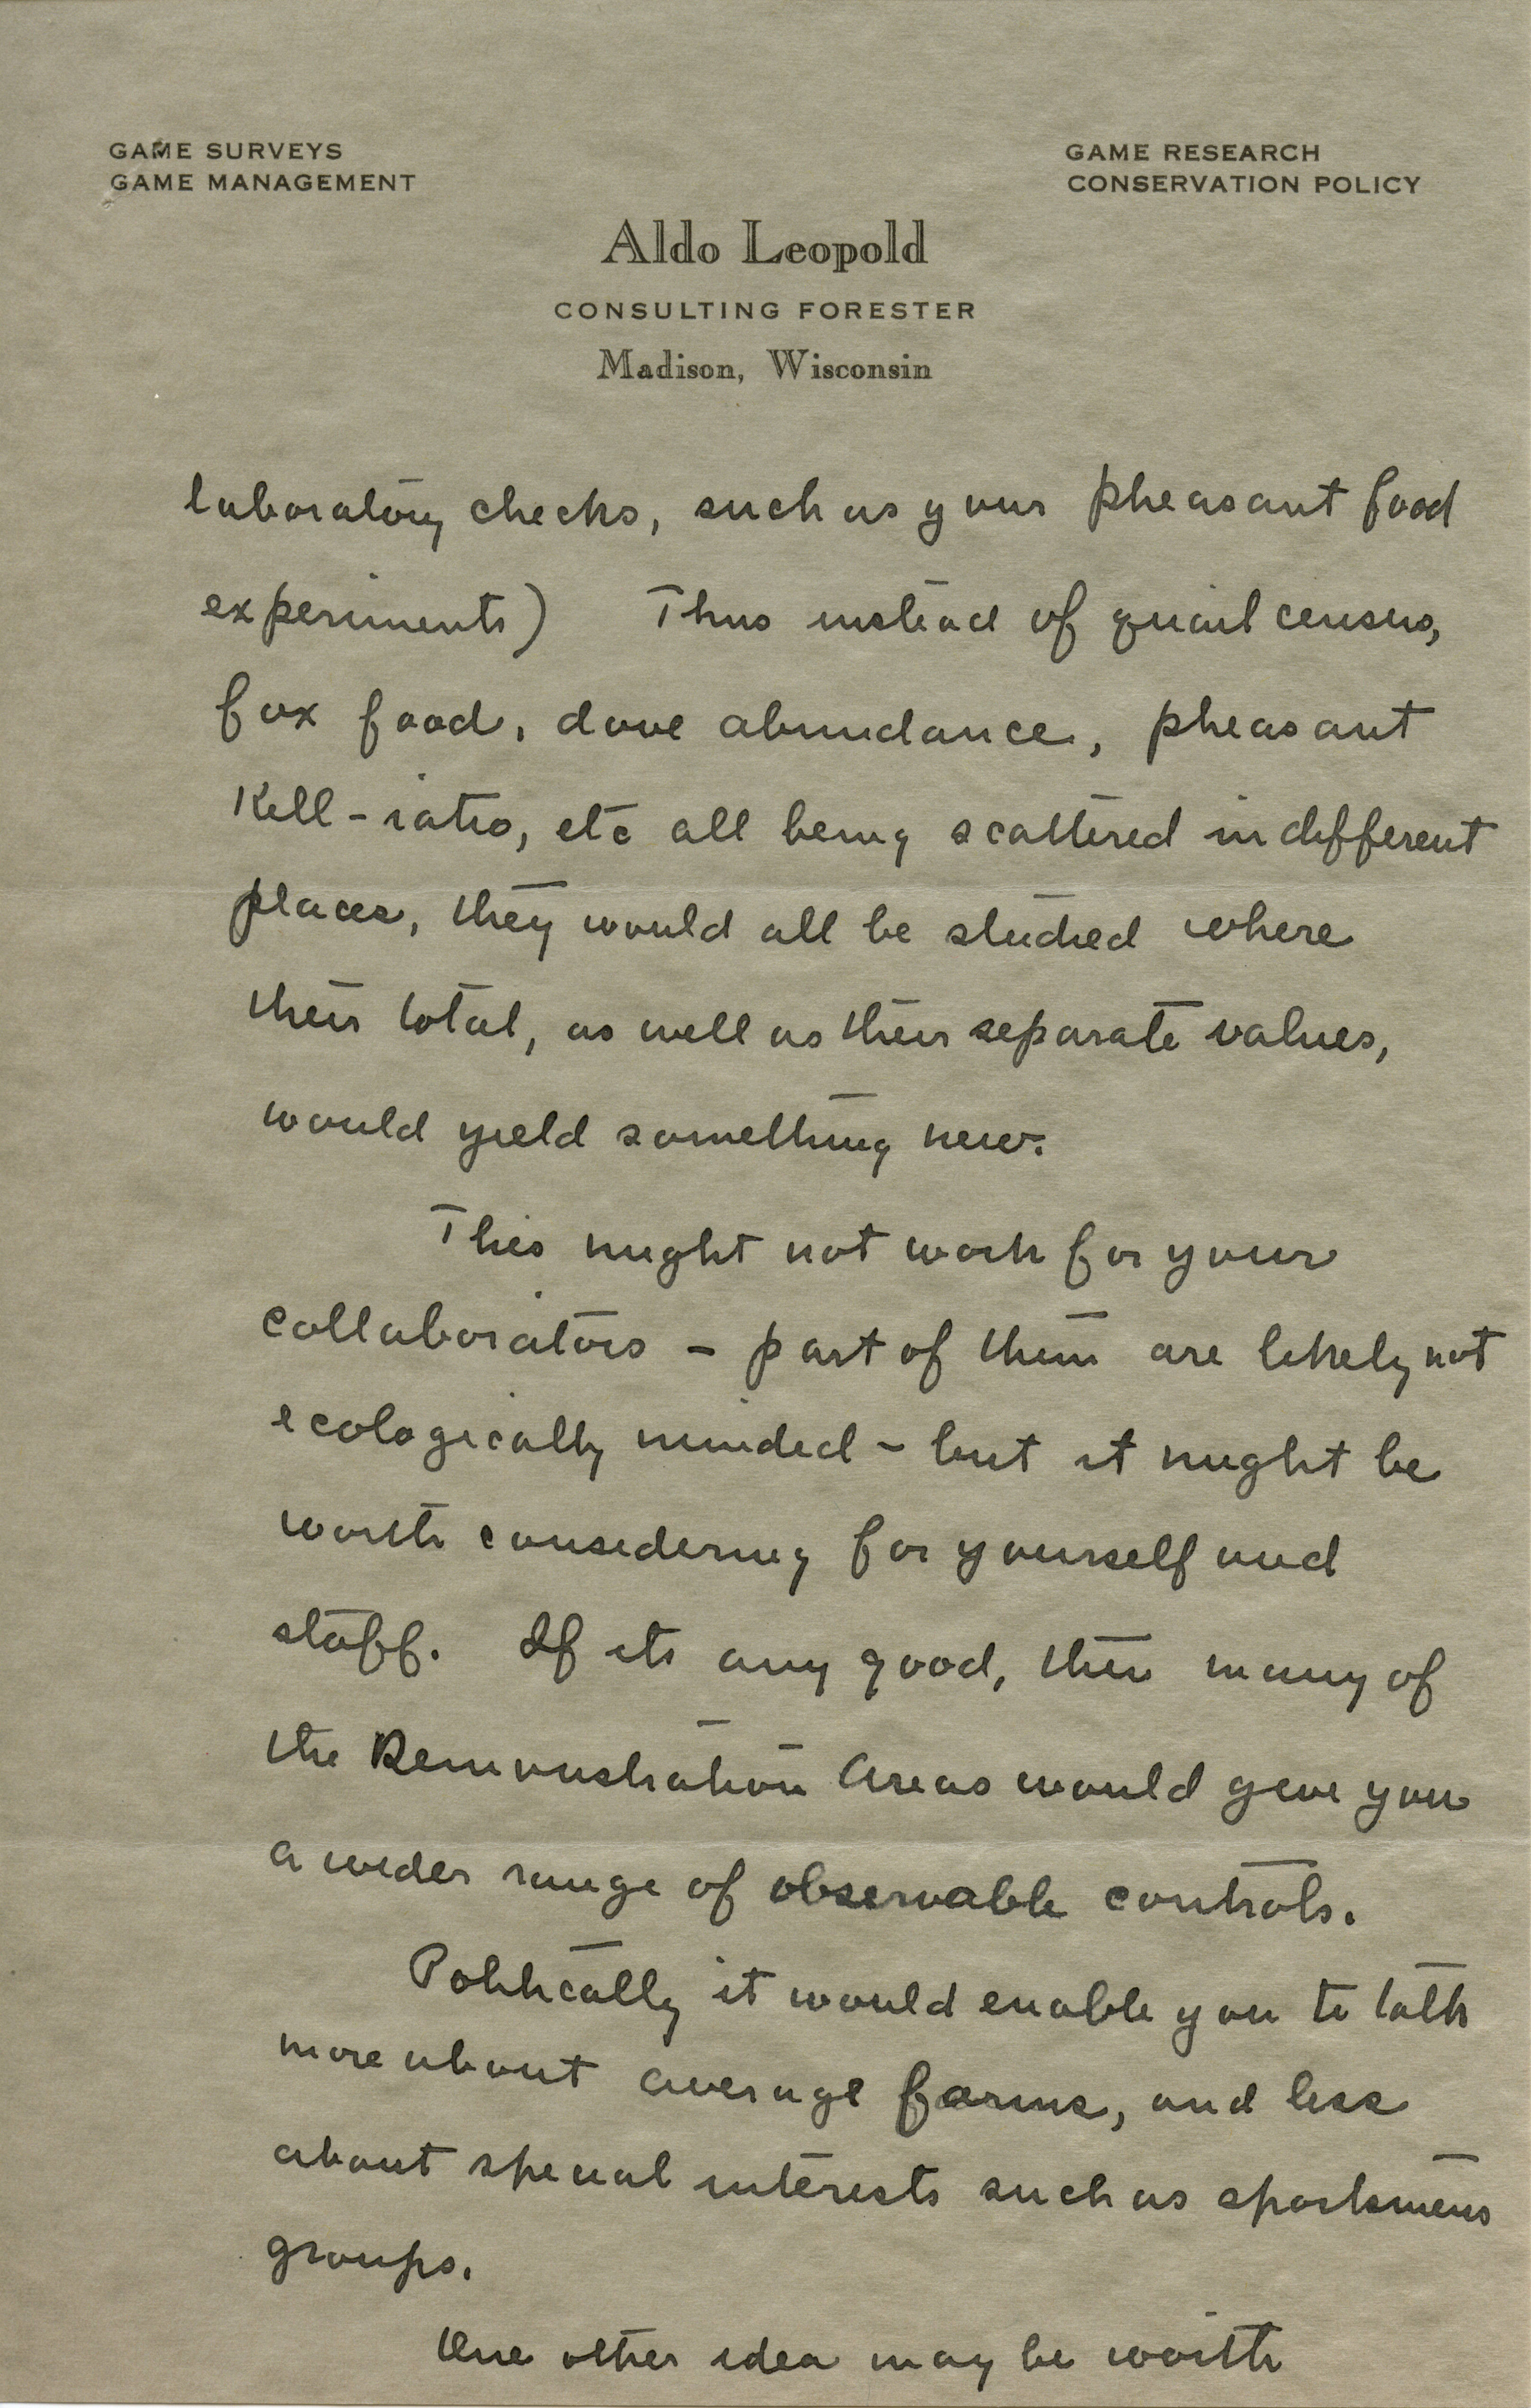 GAME SURVEYS
GAME MANAGEMENT
GAME RESEARCH
CONSERVATION POLICY
Aldo Leopold
CONSULTING FORESTER
Madison, Wisconsin
laboratory checks, such as your pheasant food
experiments) Thus instead of quail census,
fox food, dove abundance, pheasant
Kill-ratio, etc all being scattered in different
places, they would all be studied where
their total, as well as their separate values,
would yield something new.
This might not work for your
collaborators - part of them are likely not
ecologically minded - but it might be
worth considering for yourself and
staff. If its any good, then many of
the Demonstration Areas would give you
a wider range of observable controls.
Politically it would enable you to talk
more about average farms, and less
about special interests such as sportsmens
groups.
One other idea may be worth